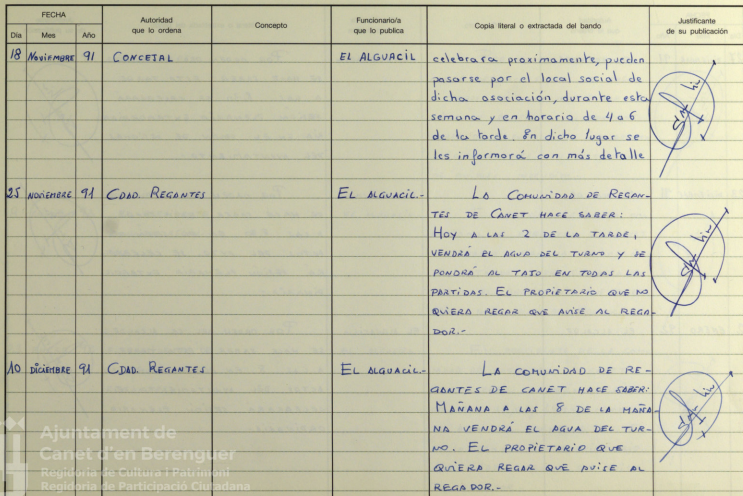 FECHA
Día Mes Año
Autoridad
que lo ordena
Concepto
Funcionario/a
que lo publica
Copia literal o extractada del bando
Justificante
de su publicación
18 NOVIEMBRE 91 CONCEJAL EL ALGUACIL
celebrara proximamente, pueden
pasarse por el local social de
dicha asociación, durante esta
semana y en horario de 4 a 6
de la tarde. En dicho lugar se
les informará con más detalle
25 NOVIEMBRE 91 CDAD. REGANTES EL ALGUACIL.-
LA COMUNIDAD DE REGAN-
TES DE CANET HACE SABER:
HOY A LAS 2 DE LA TARDE,
VENDRÁ EL AGUA DEL TURNO Y SE
PONDRÁ AL TAJO EN TODAS LAS
PARTIDAS. EL PROPIETARIO QUE NO
QUIERA REGAR QUE AVISE AL REGA-
DOR.-
10 DICIEMBRE 91 CDAD. REGANTES EL ALGUACIL.-
LA COMUNIDAD DE RE-
GANTES DE CANET HACE SABER:
MAÑANA A LAS 8 DE LA MAÑA-
NA VENDRÁ EL AGUA DEL TUR-
NO. EL PROPIETARIO QUE
QUIERA REGAR QUE AVISE AL
REGADOR.-
Ajuntament de
Canet d'en Berenguer
Regidoria de Cultura i Patrimoni
Regidoria de Participació Ciutadana